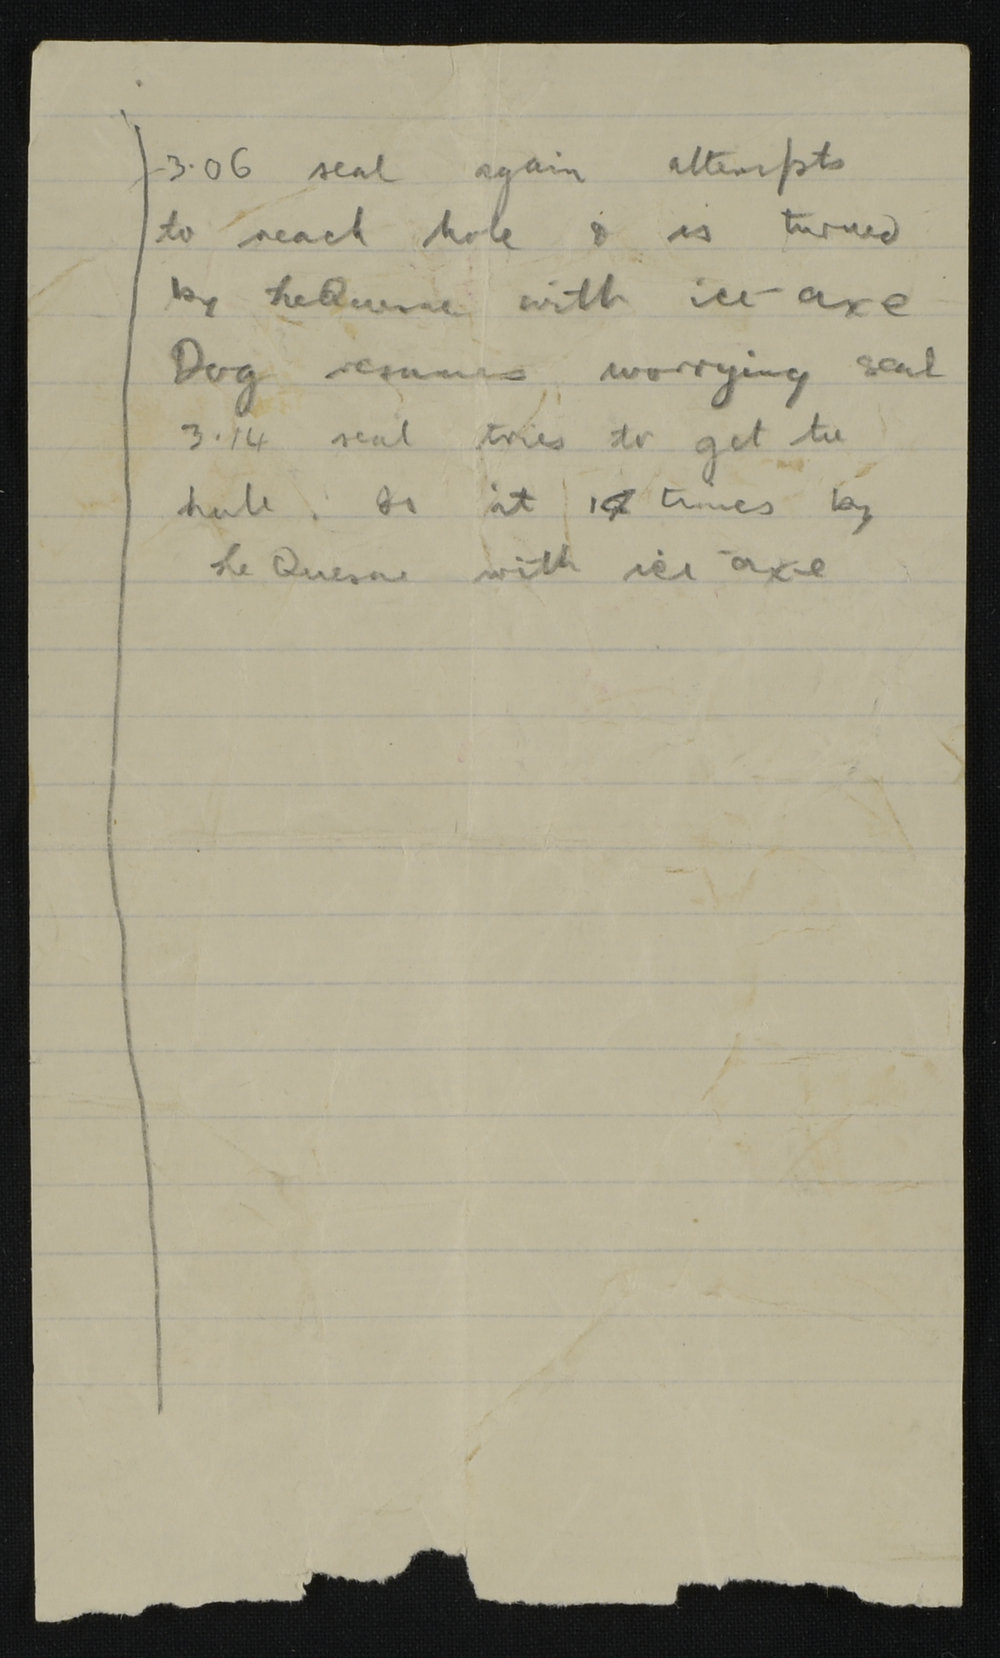 3.06 seal again attempts
to reach hole & is turned
by LeQuesne with ice-axe
Dog resumes worrying seal
3.14 seal tries to get to
hole. at times by
Le Quesne with ice-axe